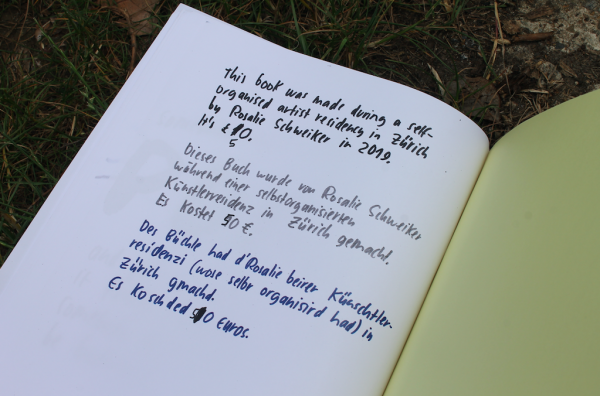 This book was made during a self-
organised artist residency in Zürich
by Rosalie Schweiker in 2019.
It's £10.
5
Dieses Buch wurde von Rosalie Schweiker
während einer selbstorganisierten
Künstlerresidenz in Zürich gemacht.
Es kostet 50 €.
Des Büchle had d'Rosalie beirer Künschtler-
residenzi (wose selbr organisird had) in
Zürich gmachd.
Es koschded 10 Euros.